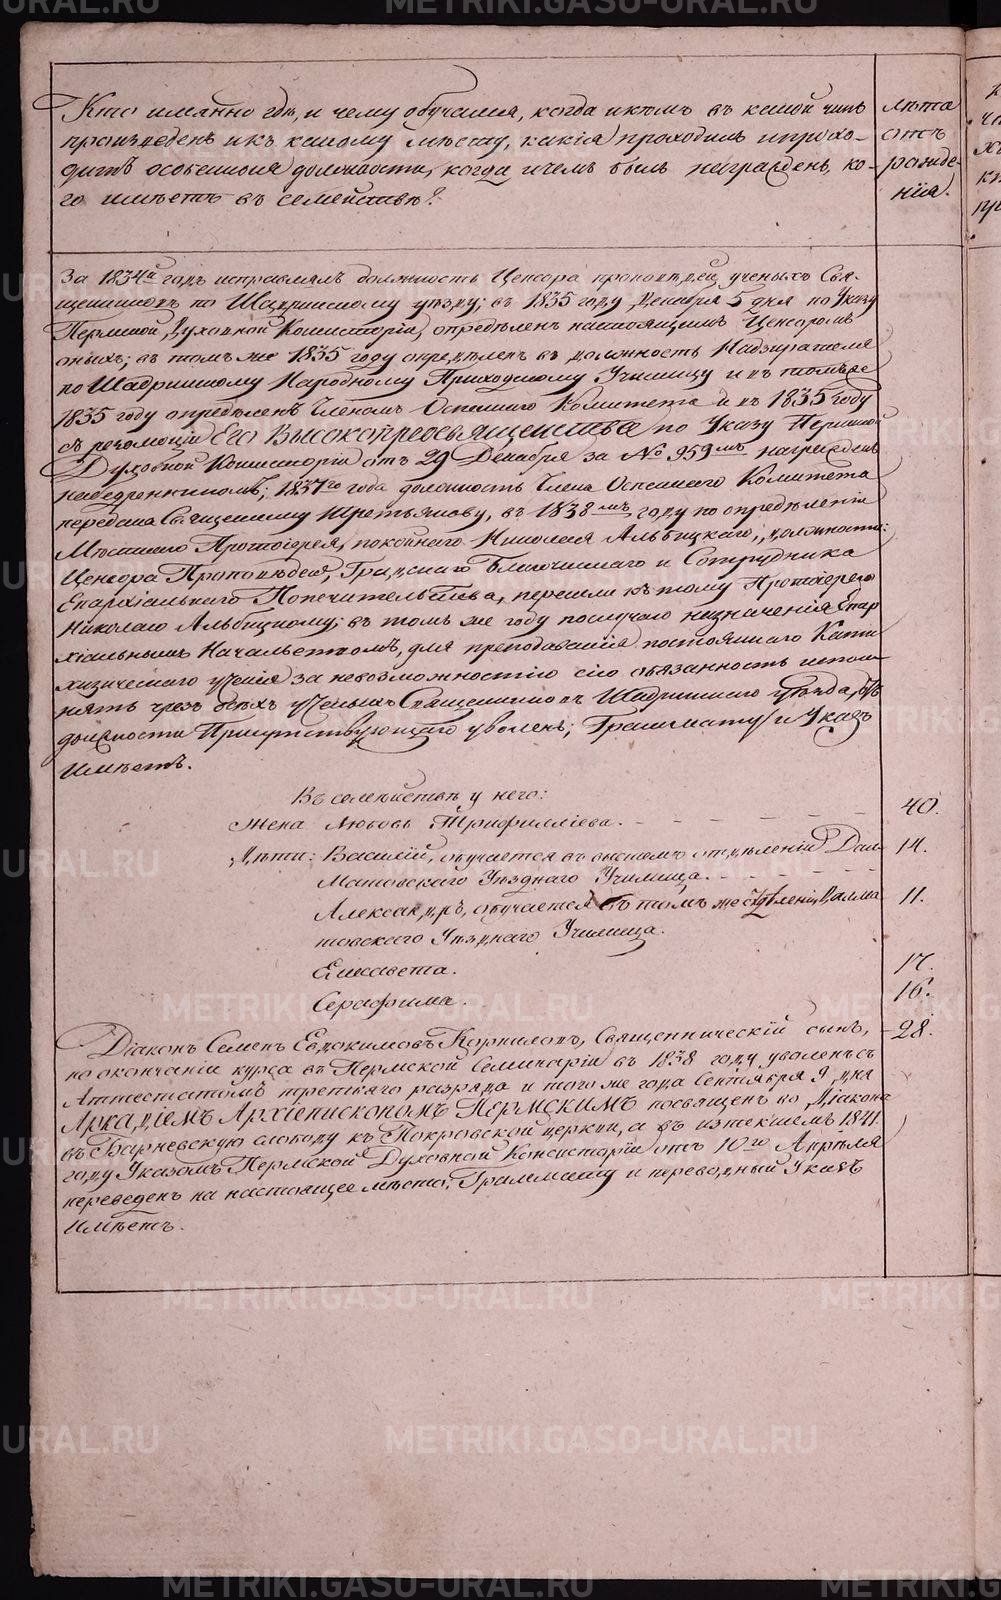 Кто иманно гдѣ, и чему обучался, когда и кѣмъ въ какой чинъ
произведенъ и къ какому мѣсту, какія проходилъ и прохо-
дитъ особенныя должности, когда и чемъ былъ награжденъ, ко-
го имѣетъ въ семействѣ?
лѣта
отъ
рожде-
нія.
За 1834й годъ исправлялъ должность Цензора проповѣдей ученыхъ Свя-
щенниковъ по Шадринскому уѣзду; въ 1835 году Декабря 5 дня по Указу
Пермской Духовной Консисторіи, опредѣленъ настоящимъ Цензоромъ
оныхъ; въ томъ же 1835 году опредѣленъ въ должность Надзирателя
по Шадринскому Народному Приходскому Училищу и въ томъ же
1835 году опредѣленъ Членомъ Оспеннаго Комитета и въ 1835 году
съ резолюціи Его Высокопреосвященства по Указу Пермской
Духовной Консисторіи отъ 29 Декабря за № 959мъ награжденъ
набедренникомъ; 1837го года должность Члена Оспеннаго Комитета
передана Священнику Третьякову, въ 1838мъ году по опредѣленіи
Мѣстнаго Протоіерея, покойнаго Николая Альбицкаго, должности:
Цензора Проповѣдей, Градскаго Благочиннаго и Сотрудника
Епархіальнаго Попечительства, перешли къ тому Протоіерею
Николаю Альбицкому; въ томъ же году послучаю назначенія Епар
хіальнымъ Начальствомъ, для преподаванія постояннаго Кати
хизическаго ученія за невозможностію сію обязанность испол
нять чрезъ всѣхъ ученыхъ Священниковъ Шадринскаго уѣзда, отъ
должности Присутствующаго уволенъ; Граммату и Указъ
имѣетъ.
Въ семействѣ у него:
Жена Любовь Трифиллiева. 40.
Дѣти: Василій, обучается въ высшемъ отдѣленіи Дал 14.
матовскаго Уѣзднаго Училища.
Александръ, обучается въ томъ же отдѣленіи Далма 11.
товскаго Уѣзднаго Училища.
Елисавета. 17.
Серафима. 16.
Діаконъ Семенъ Евдокимовъ Корниловъ, Священническій сынъ, 28.
по окончаніи курса въ Пермской Семинаріи въ 1838 году уволенъ съ
Аттестатомъ третьяго разряда и того же года Сентября 9 дня
Аркадіемъ Архіепископомъ Пермскимъ посвященъ во Діакона
въ Барневскую слободу къ Покровской церкви, а въ истекшемъ 1841
году Указомъ Пермской Духовной Консисторіи отъ 10го Апрѣля
переведенъ на настоящее мѣсто, Граммату и переводный Указъ
имѣетъ.
METRIKI.GASO-URAL.RU